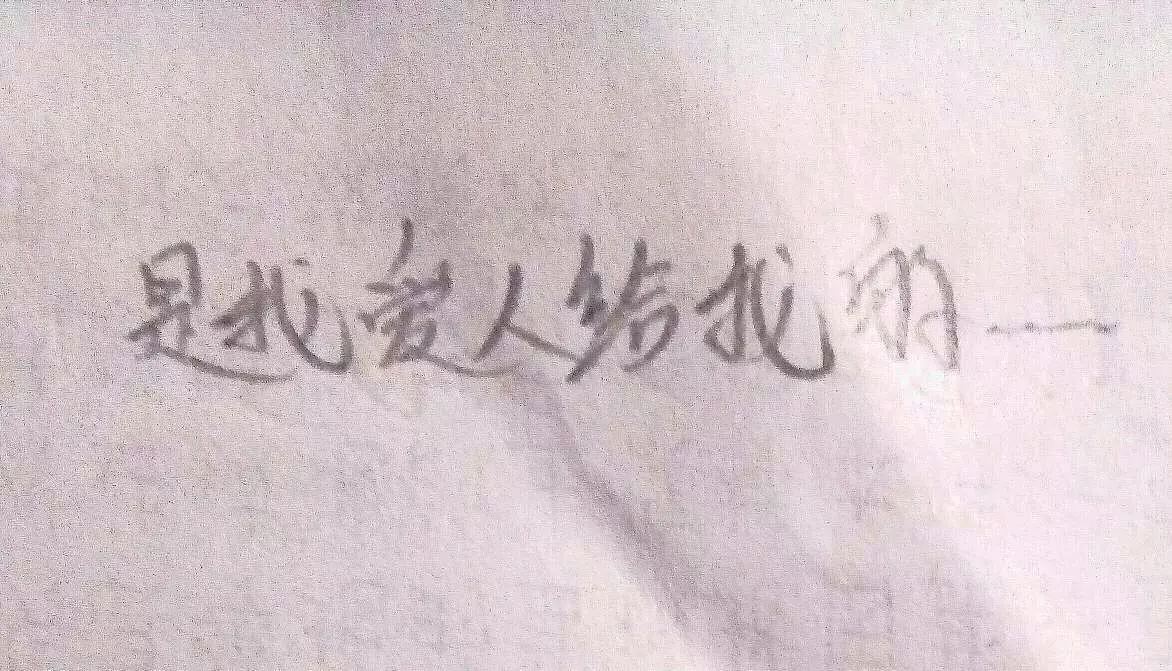 是我爱人给我的——